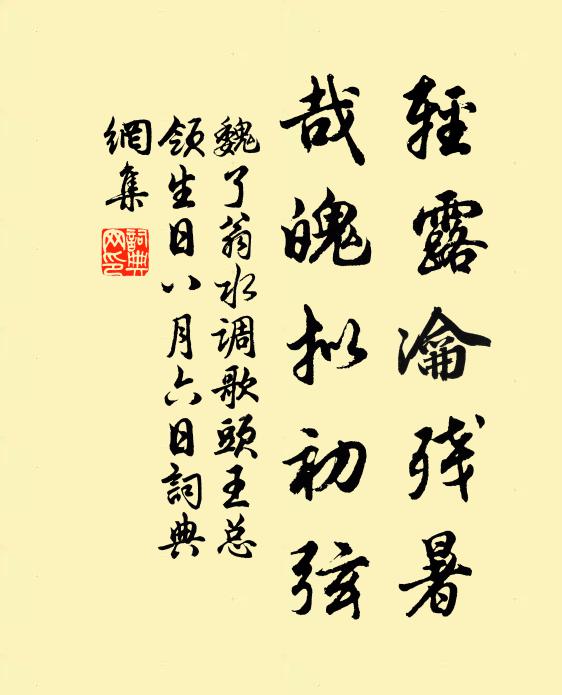 輕露瀹残暑
哉魄拟初弦
魏了翁水调歌頭王总
领生日八月六日詞典
網集
詞典
网印